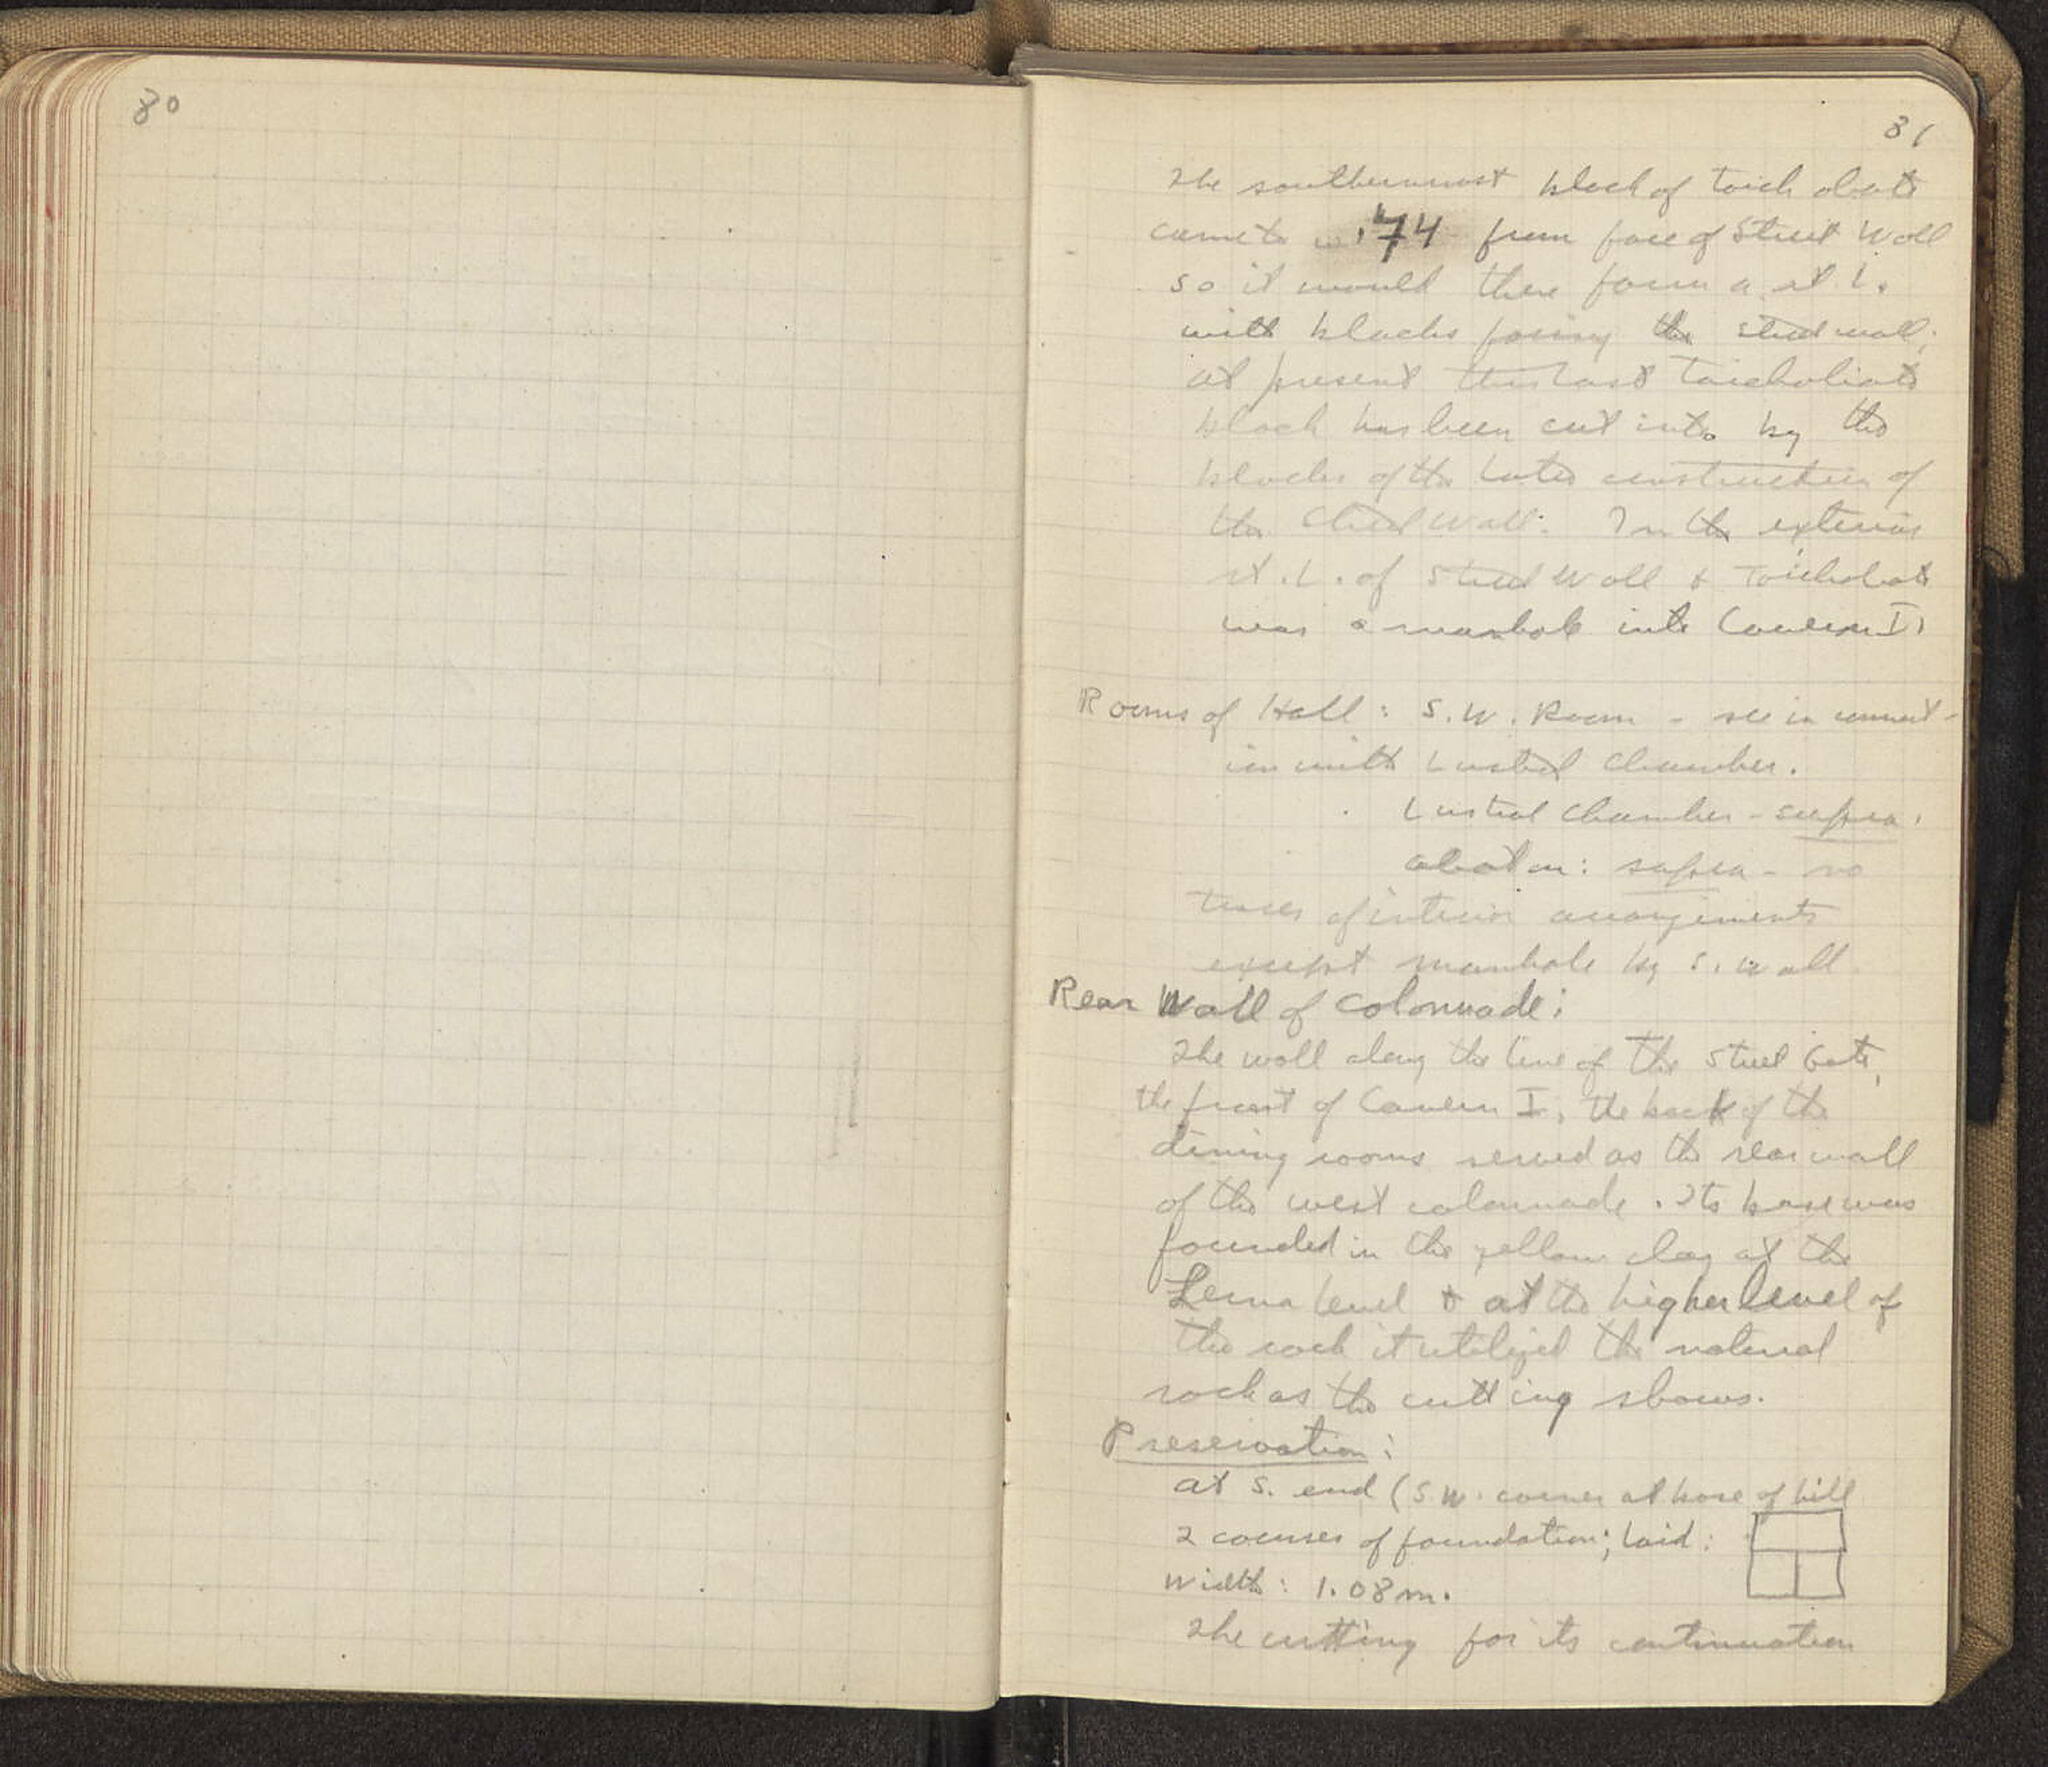 80
81
The southernmost block of toichobate
came to .74 from face of Street Wall
so it would there form a rt. L.
with blocks facing the street wall;
at present this last toichobate
block has been cut into by the
blocks of the later construction of
the Street Wall. In the exterior
rt. L. of Street Wall & Toichobate
was a manhole into Cavern I.
Rooms of Hall: S.W. Room - see in connect-
ion with Lustral Chamber.
Lustral Chamber - supra.
abaton: supra - no
traces of interior arrangements
except manhole by S. wall
Rear Wall of Colonnade:
The wall along the line of the Street Gate,
the front of Cavern I, the back of the
dining rooms served as the rear wall
of the west colonnade. Its base was
founded in the yellow clay at the
Lerna level & at the higher level of
the rock it utilized the natural
rock as the cutting shows.
Preservation:
at S. end (S.W. corner at base of hill
2 courses of foundation; laid:
Width: 1.08 m.
The cutting for its continuation